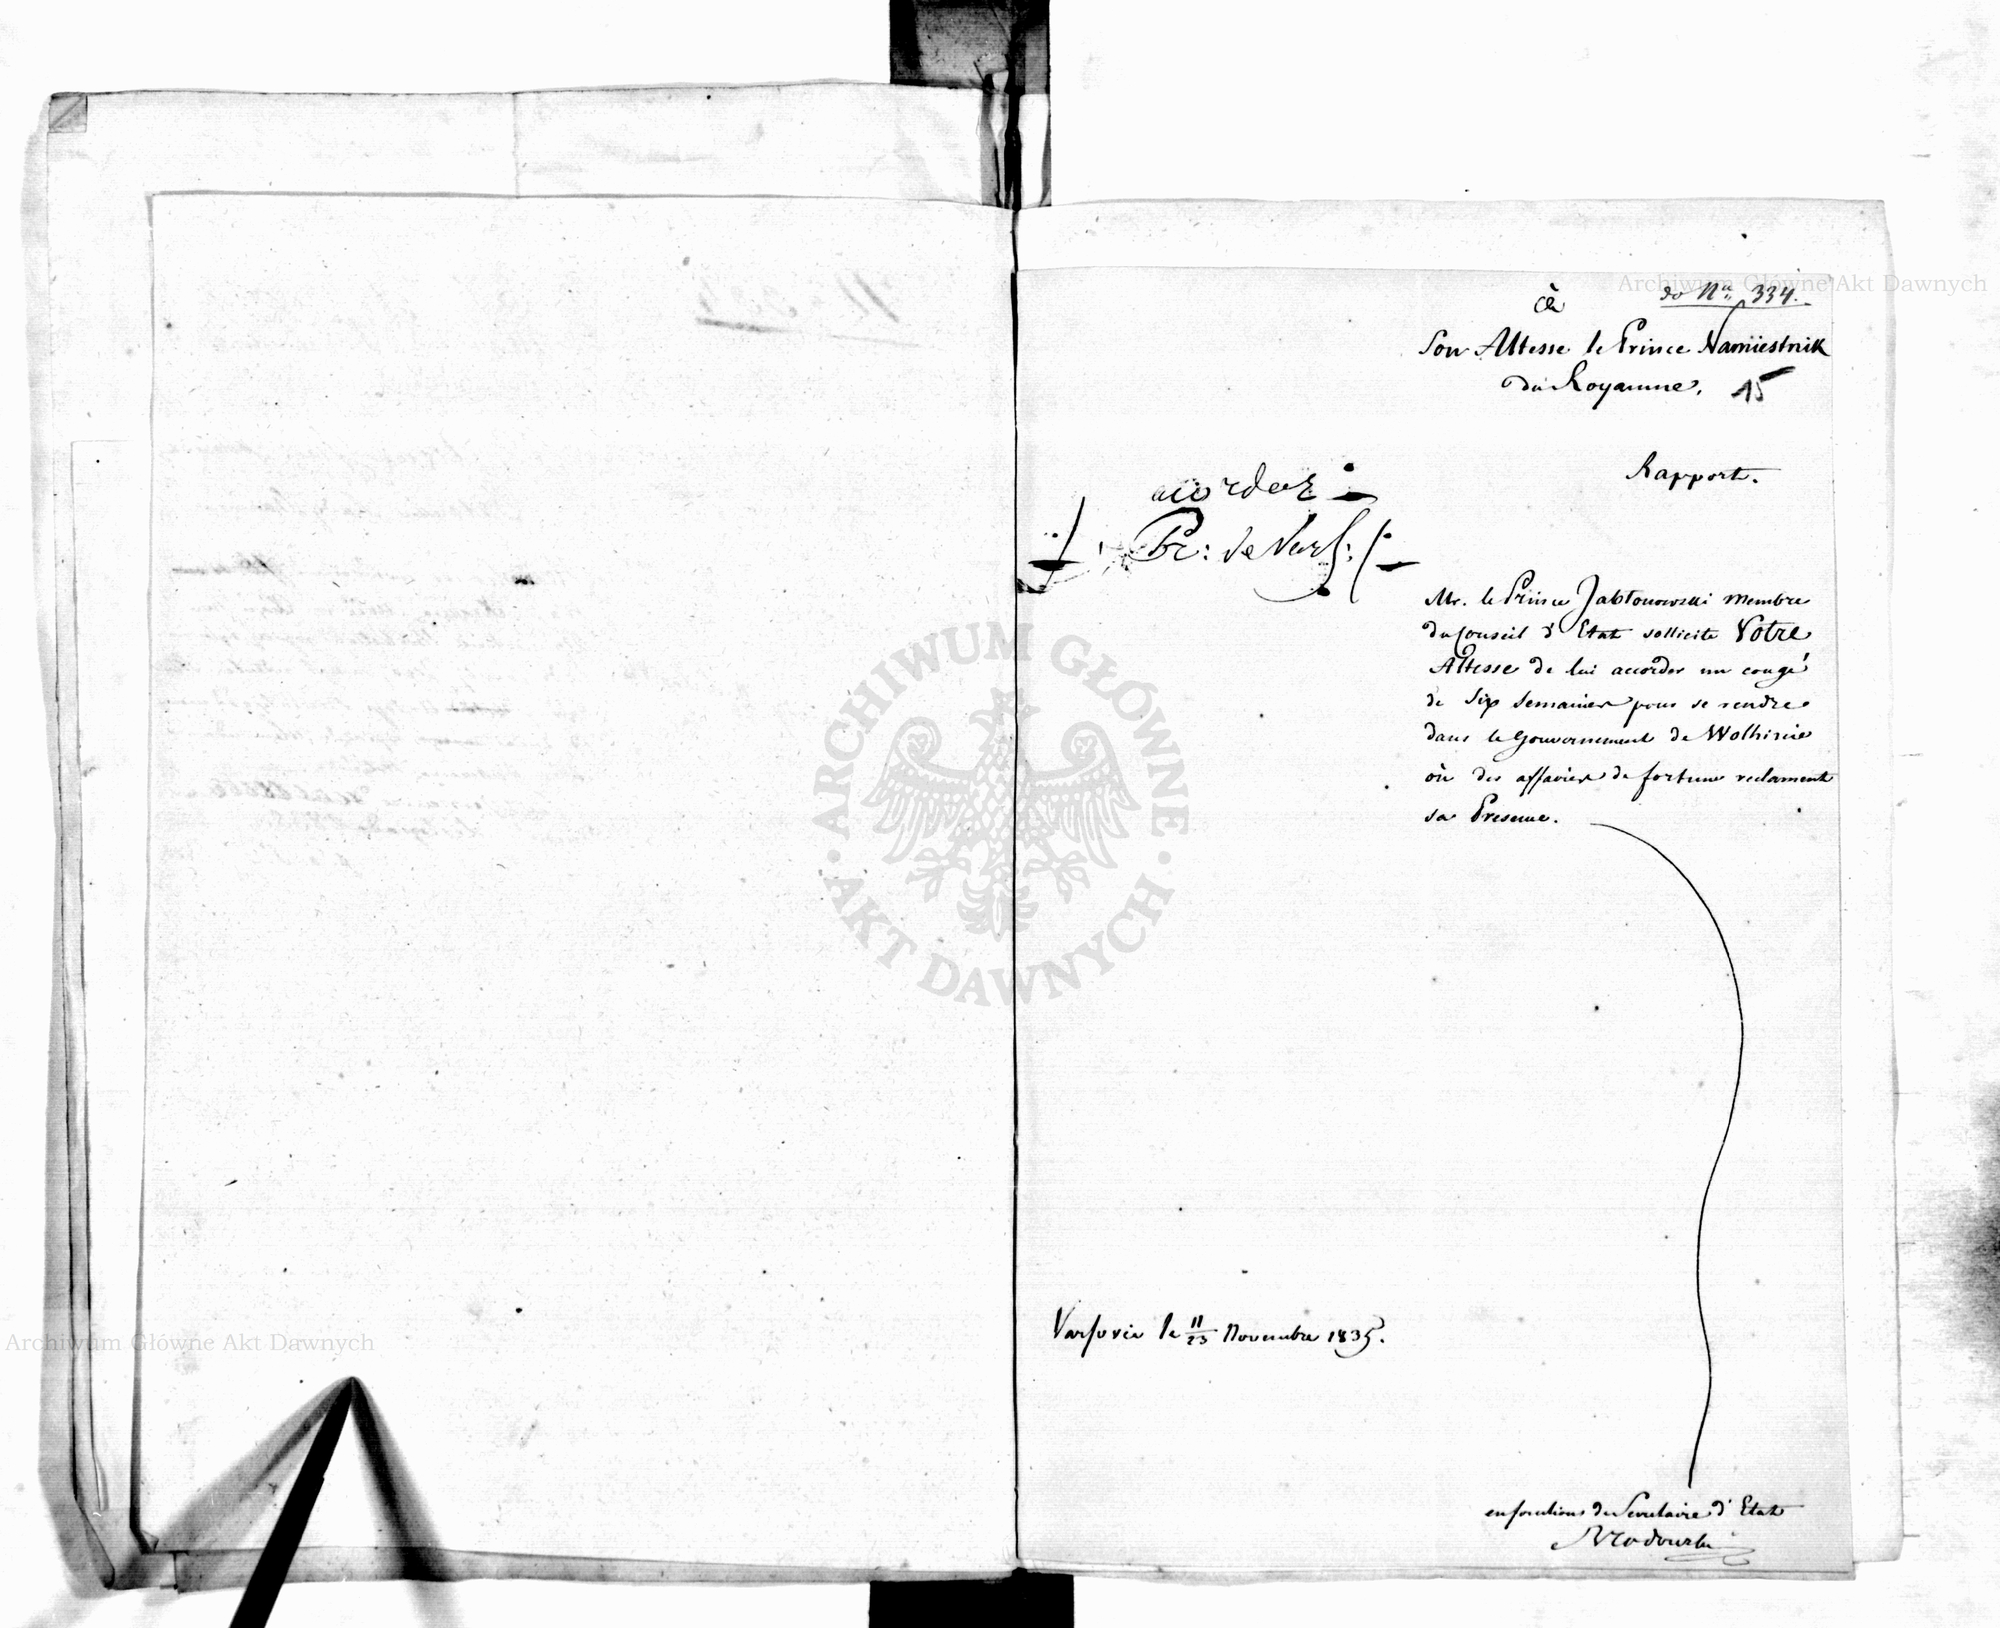 do Nu 334.
à
Son Altesse le Prince Namiestnik
du Royaume.
15
Rapport.
acordeez
Pr: de Vars:
Mr. le Prince Jabłonowski Membre
du Conseil d'Etat sollicite Votre
Altesse de lui accorder un congé
de Six semaines pour se rendre
dans le Gouvernement de Wolhinie
où des affaires de fortune reclament
sa Presence.
Varsovie le 11/23 Novembre 1835.
en fonctions de Secretaire d'Etat
ARCHIWUM GŁÓWNE
AKT DAWNYCH
Archiwum Główne Akt Dawnych
Archiwum Główne Akt Dawnych